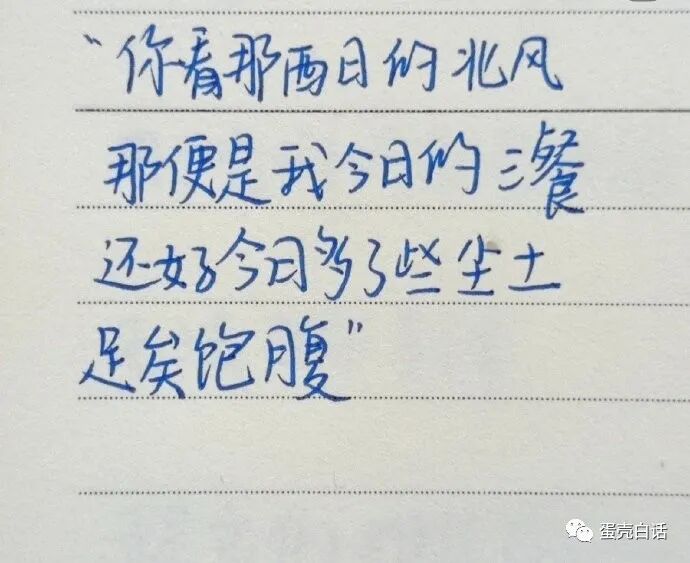 “你看那西日的北风
那便是我今日的三餐
还好今日多了些尘土
足矣饱腹”
蛋壳白话